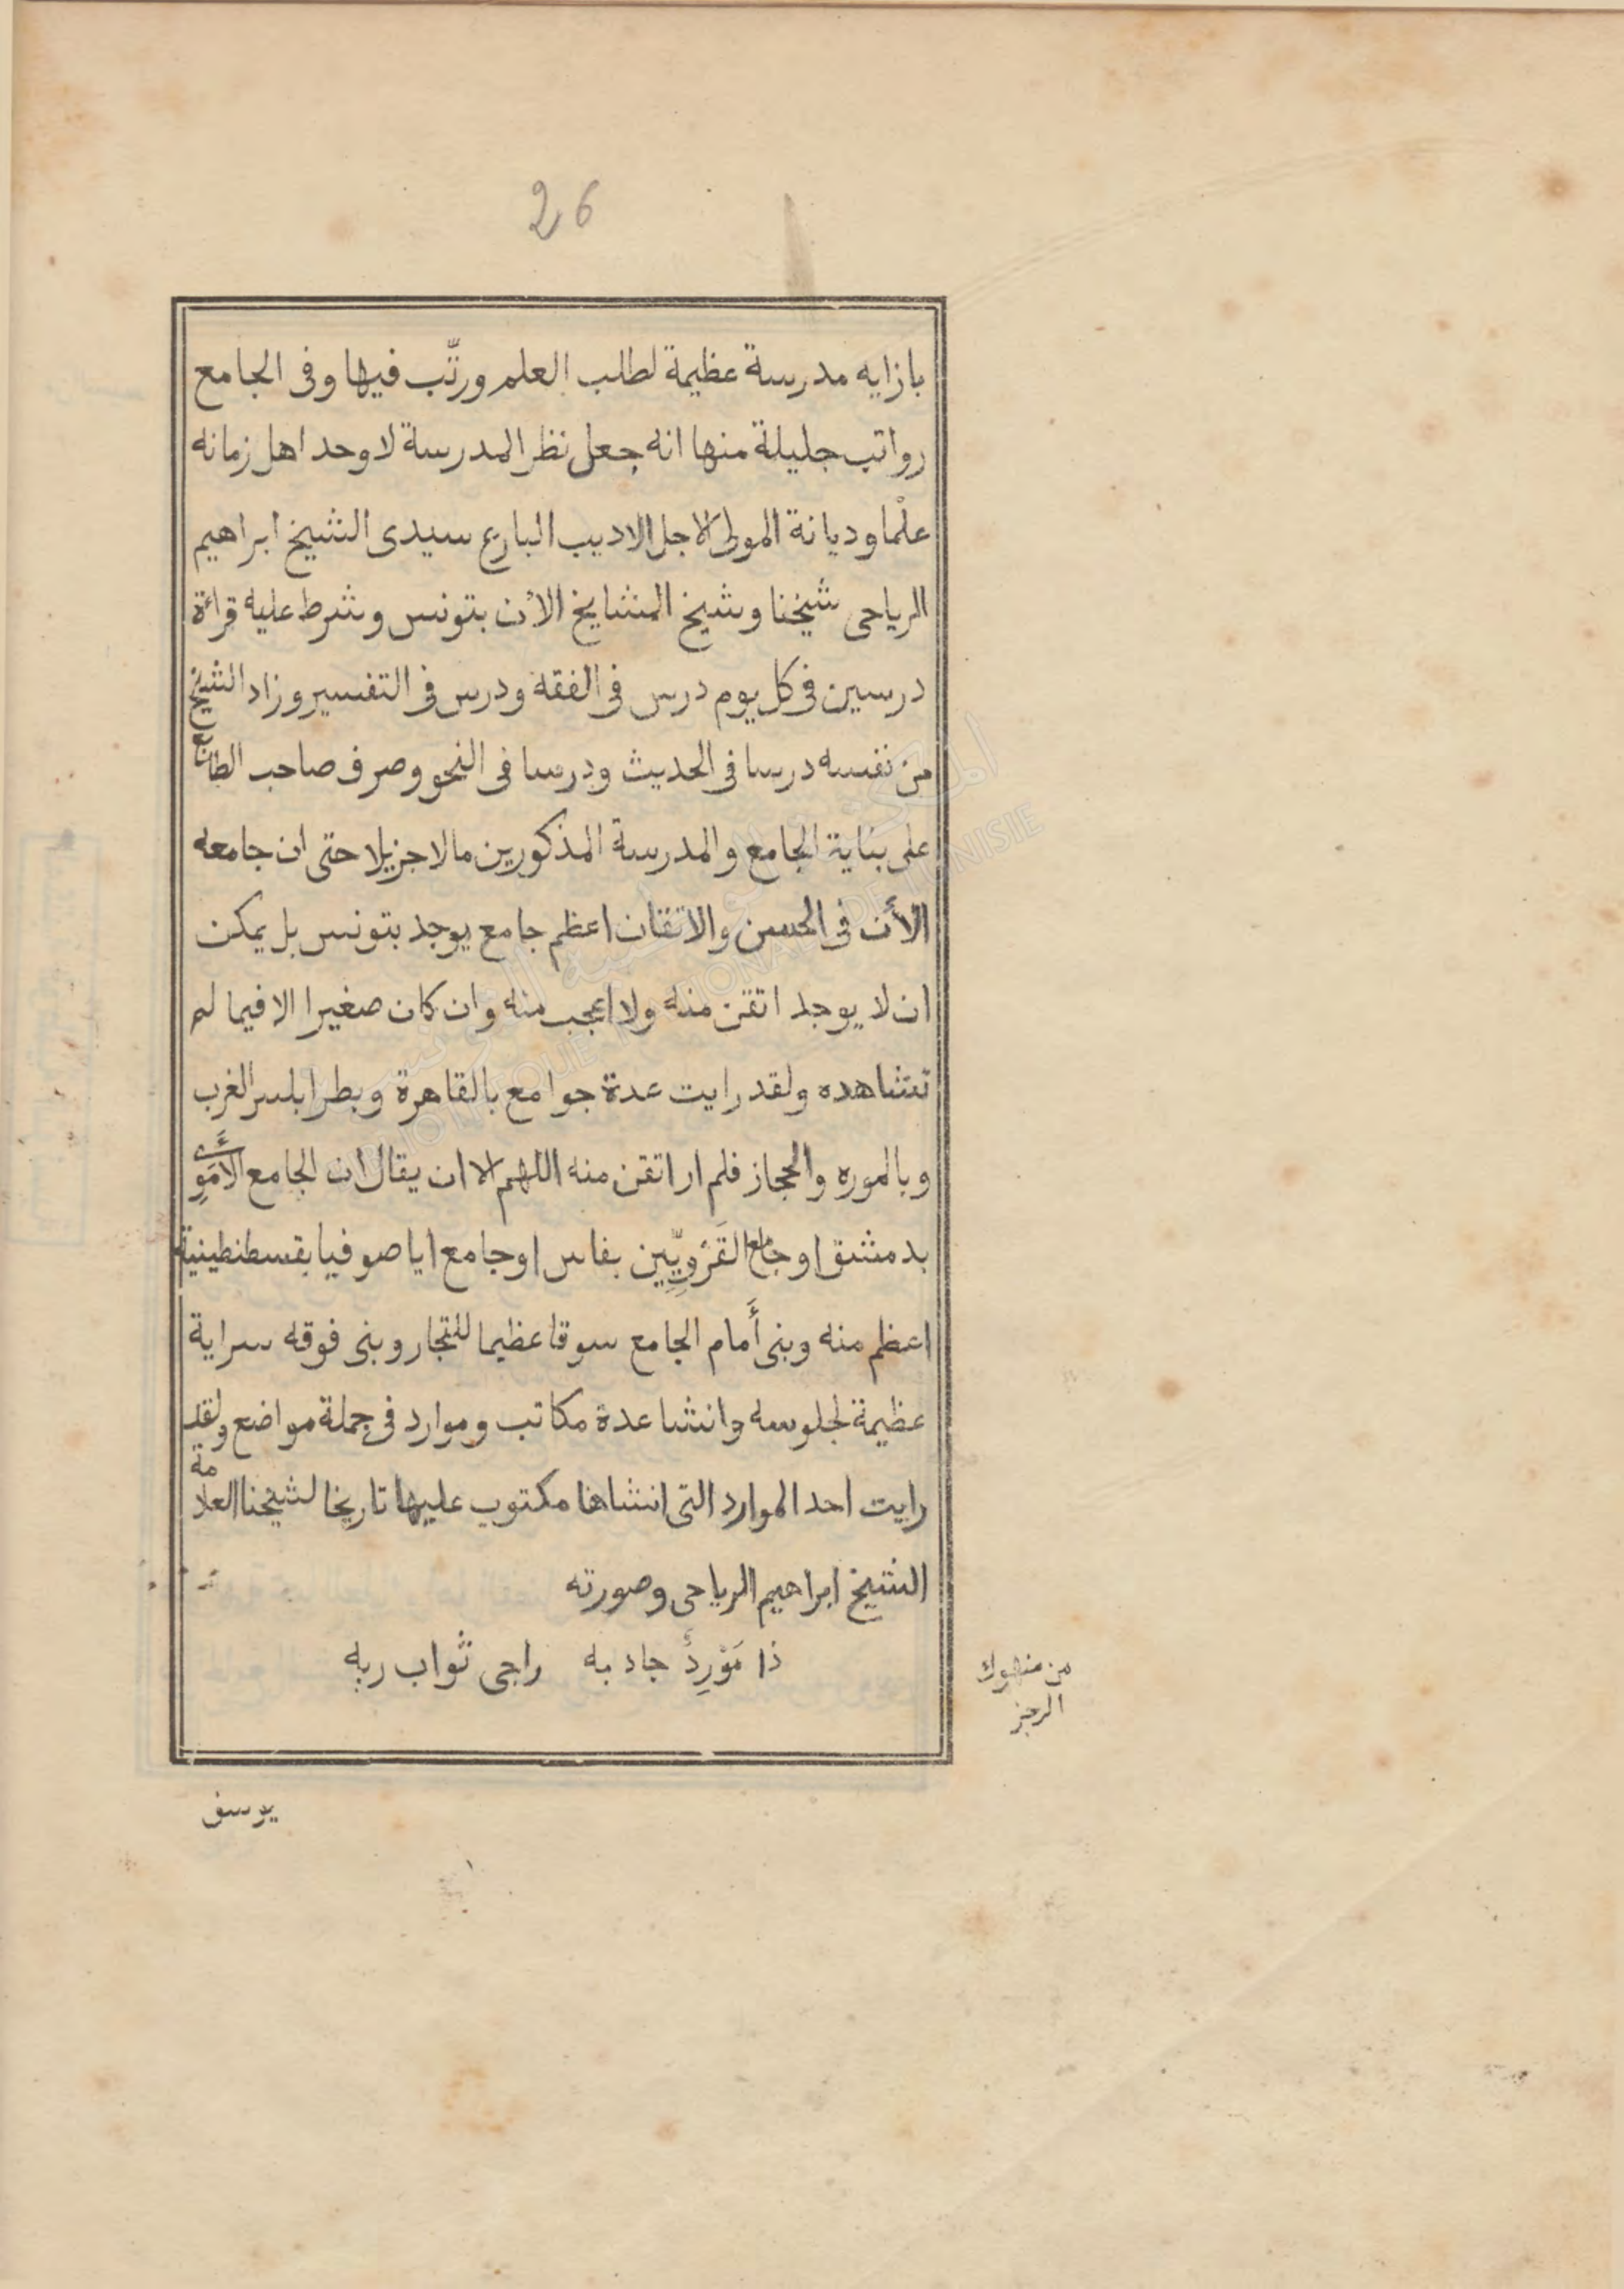 26
بازايه مدرسة عظيمة لطلب العلم ورتّب فيها وفى الجامع
رواتب جليلة منها انه جعل نظر المدرسة لاوحد اهل زمانه
علْما وديانة المولى الاجل الاديب البارع سيدى الشيخ ابراهيم
الرياحى شيخنا وشيخ المشايخ الأن بتونس وشرط عليه قرائة
درسين فى كل يوم درس فى الفقه ودرس فى التفسير وزاد الشيخ
من نفسه درسا فى الحديث ودرسا فى النحو وصرف صاحب الطابع
على بناية الجامع والمدرسة المذكورين مالا جزيلا حتى ان جامعه
الأن فى الحسن والاتقان اعظم جامع يوجد بتونس بل يمكن
ان لا يوجد اتقن منه ولا اعجب منه وان كان صغيرا الا فيما لم
نشاهده ولقد رايت عدة جوامع بالقاهرة وبطرابلس الغرب
وبالموره والحجاز فلم ار اتقن منه اللهم الا ان يقال ان الجامع الأمَوِى
بدمشق او جامع القَرَوِيِّين بفاس او جامع ايا صوفيا بقسطنطينية
اعظم منه وبنى أَمام الجامع سوقا عظيما للتجار وبنى فوقه سراية
عظيمة لجلوسه وانشا عدة مكاتب وموارد فى جملة مواضع ولقد
رايت احد الموارد التى انشاها مكتوب عليها تاريخا لشيخنا العلامة
الشيخ ابراهيم الرياحى وصورته
ذا مَوْرِدٌ جاد به راجى ثواب ربه
من منهوك
الرجز
يوسف